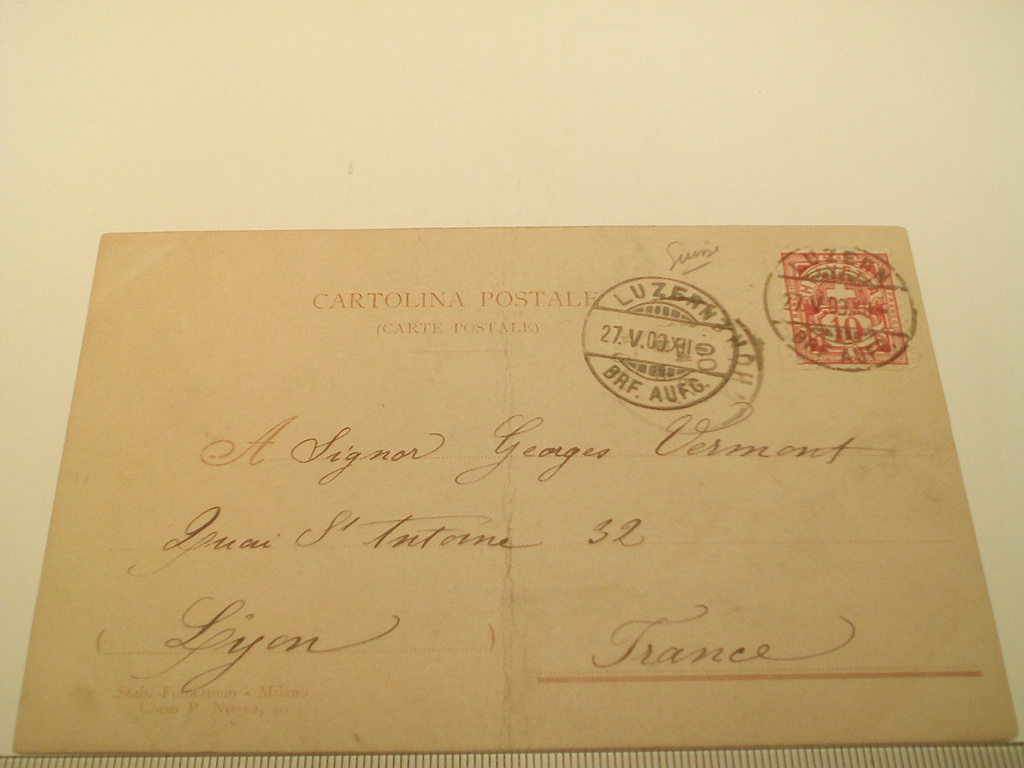 Suisse
CARTOLINA POSTALE
(CARTE POSTALE)
LUZERN
27.V.00.XI
BRF. AUFG.
LUZERN
27.V.00.XI
BRF. AUFG.
10
A Signor Georges Vermont
Quai St Antoine 32
( Lyon )
France
Stab. Fotocromo - Milano
Corso P. Nuova,